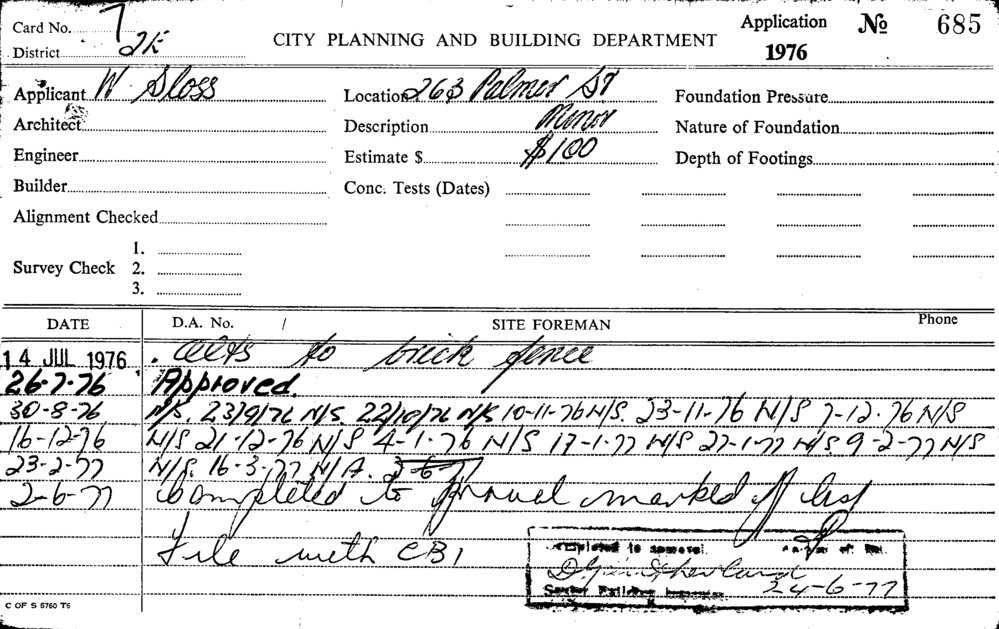 Card No. 7
District 2E
CITY PLANNING AND BUILDING DEPARTMENT
Application № 685
1976
Applicant W Sloss
Location 263 Palmer St
Foundation Pressure
Architect
Description Minor
Nature of Foundation
Engineer
Estimate $ $100
Depth of Footings
Builder
Conc. Tests (Dates)
Alignment Checked
Survey Check 1.
2.
3.
DATE D.A. No. / SITE FOREMAN Phone
14 JUL 1976 . alts to brick fence
26-7-76 Approved.
30-8-76 N/S. 23/9/76 N/S. 22/10/76 N/S 10-11-76 N/S. 23-11-76 N/S 7-12-76 N/S
16-12-76 N/S 21-12-76 N/S 4-1-76 N/S 17-1-77 N/S 27-1-77 N/S 9-2-77 N/S
23-2-77 N/S. 16-3-77 N/A. 2-6-77
2-6-77 Completed to marked off list
File with CBI
Completed to approval.
24-6-77
Senior Building Inspector
C OF S 6760 T6